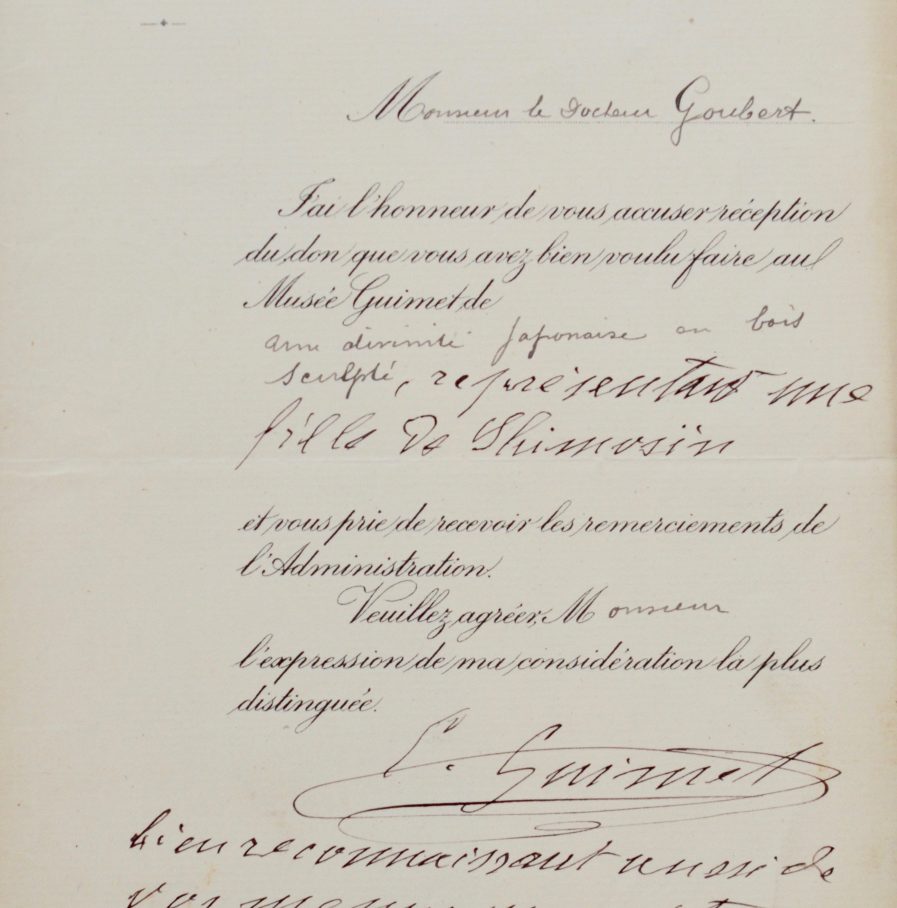 Monsieur le Docteur Goubert.
J'ai l'honneur de vous accuser réception
du don que vous avez bien voulu faire au
Musée Guimet de
une divinité japonaise en bois
sculpté, représentant une
fille de Shimosin
et vous prie de recevoir les remerciements de
l'Administration.
Veuillez agréer, Monsieur
l'expression de ma considération la plus
distinguée.
E. Guimet
bien reconnaissant aussi de
vos